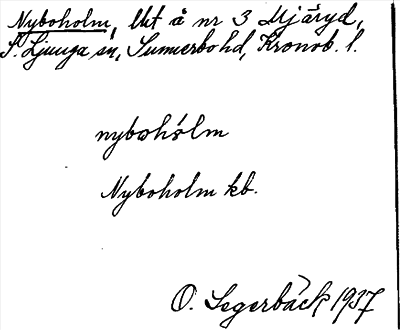 Nyboholm, lht å nr 3 Mjäryd,
S. Ljunga sn, Sunnerbo hd, Kronob. l.
nyboholm
Nyboholm kb.
O. Segerbäck 1937